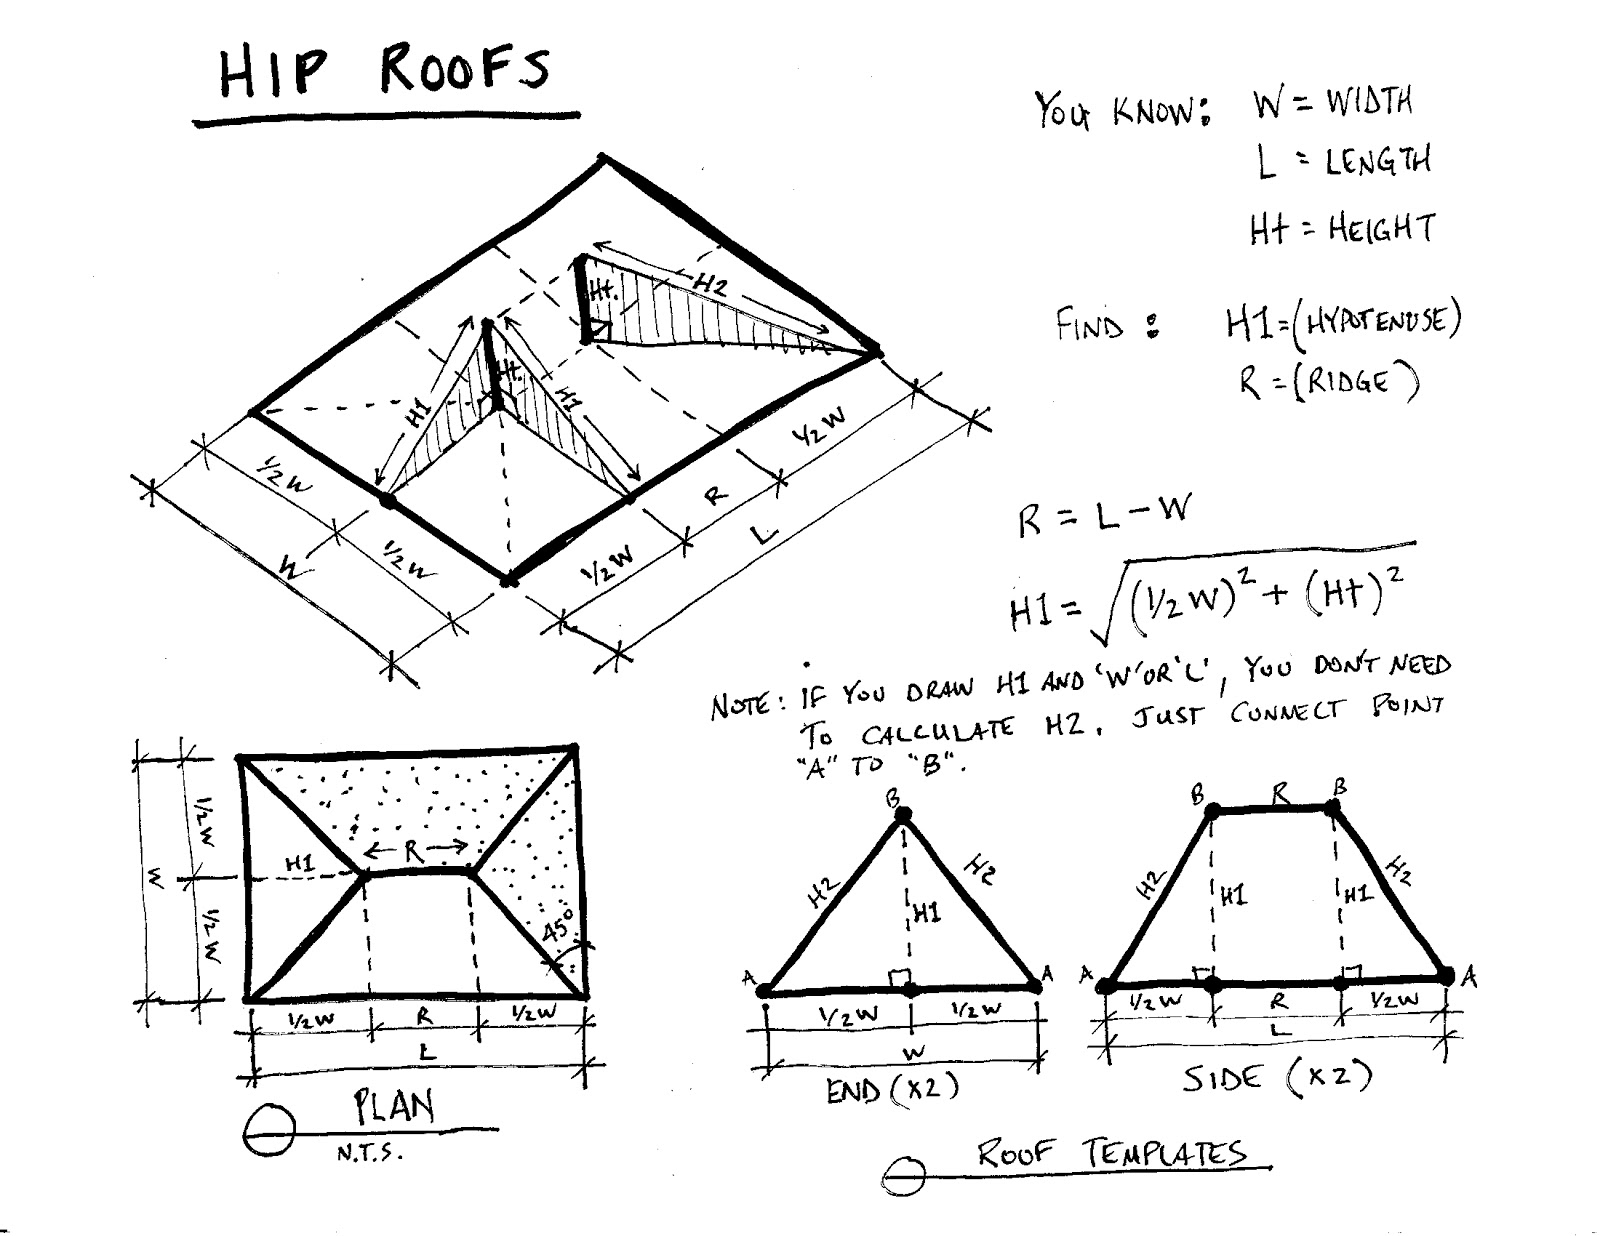 HIP ROOFS
YOU KNOW: W = WIDTH
L = LENGTH
Ht = HEIGHT
FIND: H1=(HYPOTENUSE)
R =(RIDGE)
H2
Ht.
H1
Ht.
H1
1/2W
1/2W
W
1/2W
R
1/2W
L
R = L - W
H1 = √(1/2W)² + (Ht)²
NOTE: IF YOU DRAW H1 AND 'W' OR 'L', YOU DON'T NEED
TO CALCULATE H2. JUST CONNECT POINT
"A" TO "B".
W
1/2W
1/2W
H1
R
45°
1/2W R 1/2W
L
PLAN
N.T.S.
B
H2
H2
H1
A
A
1/2W 1/2W
W
END (X2)
B R B
H2
H1
H1
H2
A
A
1/2W R 1/2W
L
SIDE (X2)
ROOF TEMPLATES